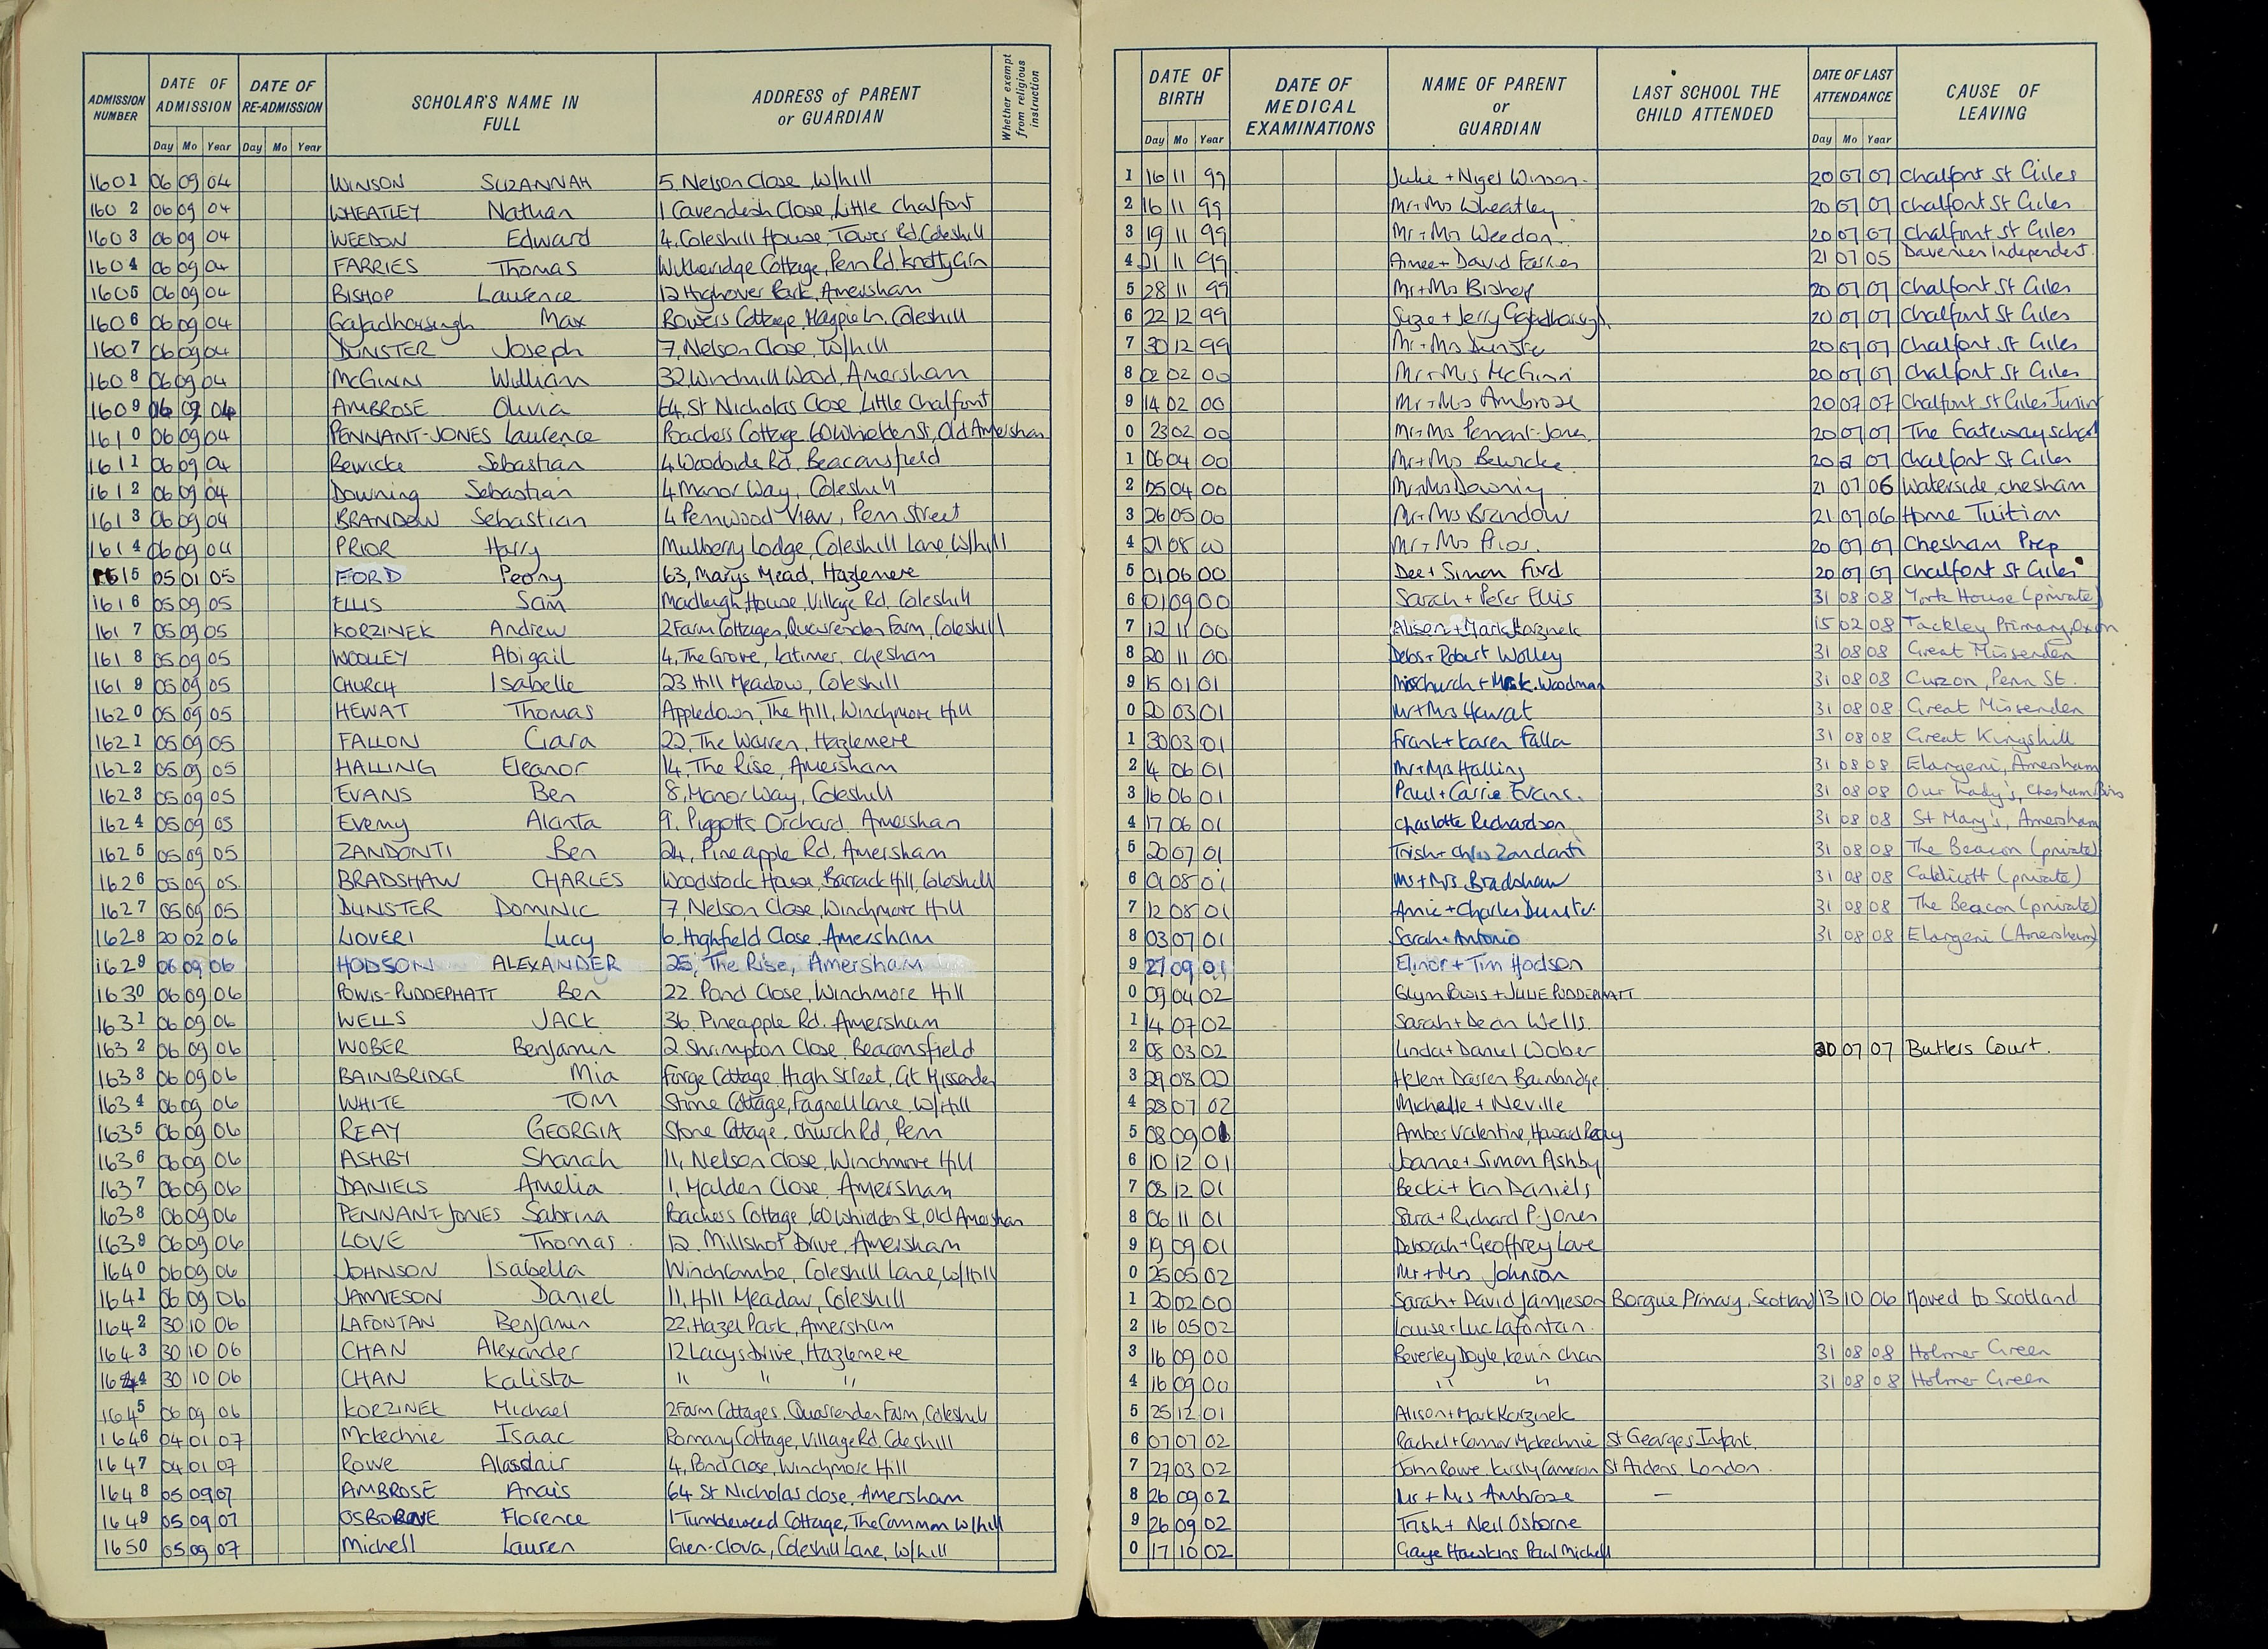 ADMISSION NUMBER DATE OF ADMISSION DATE OF RE-ADMISSION SCHOLAR'S NAME IN FULL ADDRESS of PARENT or GUARDIAN Whether exempt from religious instruction DATE OF BIRTH DATE OF MEDICAL EXAMINATIONS NAME OF PARENT or GUARDIAN LAST SCHOOL THE CHILD ATTENDED DATE OF LAST ATTENDANCE CAUSE OF LEAVING
Day Mo Year Day Mo Year Day Mo Year Day Mo Year
1601 06 09 04 WINSON SUZANNAH 5, Nelson Close, W/hill 1 16 11 99 Julie + Nigel Winson. 20 07 07 Chalfont St Giles
1602 06 09 04 WHEATLEY Nathan 1 Cavendish Close, Little Chalfont 2 16 11 99 Mr+Mrs Wheatley. 20 07 07 Chalfont St Giles
1603 06 09 04 WEEDON Edward 4, Coleshill House, Tower Rd, Coleshill 3 19 11 99 Mr + Mrs Weedon. 20 07 07 Chalfont St Giles
1604 06 09 04 FARRIES Thomas Witheridge Cottage, Penn Rd, Knotty Grn 4 21 11 99 Aimee + David Farries 21 07 05 Davenies Independent.
1605 06 09 04 BISHOP Laurence 12 Highover Park, Amersham 5 28 11 99 Mr+Mrs Bishop 20 07 07 Chalfont St Giles
1606 06 09 04 Gajadharsingh Max Bowers Cottage, Magpie Ln, Coleshill 6 22 12 99 Suzie + Jerry Gajadharsingh 20 07 07 Chalfont St Giles
1607 06 09 04 DUNSTER Joseph 7, Nelson Close, W/hill 7 30 12 99 Mr + Mrs Dunster 20 07 07 Chalfont St Giles
1608 06 09 04 McGINN William 32, Windmill Wood, Amersham 8 02 02 00 Mr + Mrs McGinn 20 07 07 Chalfont St Giles
1609 06 09 04 AMBROSE Olivia 64, St Nicholas Close, Little Chalfont 9 14 02 00 Mr + Mrs Ambrose 20 07 07 Chalfont St Giles Junior
1610 06 09 04 PENNANT-JONES Laurence Poachers Cottage, 60 Whielden St, Old Amersham 0 23 02 00 Mr+Mrs Pennant-Jones. 20 07 07 The Gateway school
1611 06 09 04 Bewicke Sebastian 4 Woodside Rd, Beaconsfield 1 06 04 00 Mr+Mrs Bewicke. 20 07 Chalfont St Giles
1612 06 09 04 Downing Sebastian 4 Manor Way, Coleshill 2 05 04 00 Mr+Mrs Downing. 21 07 06 Waterside, Chesham
1613 06 09 04 BRANDOW Sebastian 4 Pennwood View, Penn Street 3 26 05 00 Mr+Mrs Brandow 21 07 06 Home Tuition
1614 06 09 04 PRIOR Harry Mulberry Lodge, Coleshill Lane, W/hill 4 21 08 00 Mr + Mrs Prior. 20 07 07 Chesham Prep
1615 05 01 05 FORD Peony 63, Marys Mead, Hazlemere 5 01 06 00 Dee + Simon Ford 20 07 07 Chalfont St Giles
1616 05 09 05 ELLIS Sam Madleigh House, Village Rd, Coleshill 6 01 09 00 Sarah + Peter Ellis 31 08 08 York House (private)
1617 05 09 05 KORZINEK Andrew 2 Farm Cottages, Quarrenden Farm, Coleshill 7 12 11 00 Alison + Mark Korzinek 15 02 08 Tackley Primary, Oxon
1618 05 09 05 WOOLLEY Abigail 4, The Grove, Latimer, Chesham 8 20 11 00 Debs + Robert Wolley 31 08 08 Great Missenden
1619 05 09 05 CHURCH Isabelle 23 Hill Meadow, Coleshill 9 15 01 01 Miss Church + Mark Woodman 31 08 08 Curzon, Penn St.
1620 05 09 05 HEWAT Thomas Appledown, The Hill, Winchmore Hill 0 20 03 01 Mr+Mrs Hewat 31 08 08 Great Missenden
1621 05 09 05 FALLON Ciara 22, The Warren, Hazlemere 1 30 03 01 Frank + Karen Fallon 31 08 08 Great Kingshill
1622 05 09 05 HALLING Eleanor 14, The Rise, Amersham 2 14 06 01 Mr+Mrs Halling 31 08 08 Elangeni, Amersham
1623 05 09 05 EVANS Ben 8, Manor Way, Coleshill 3 16 06 01 Paul + Carrie Evans. 31 08 08 Our Lady's, Chesham Bois
1624 05 09 05 Evemy Alanta 9, Piggotts Orchard, Amersham 4 17 06 01 Charlotte Richardson 31 08 08 St Mary's, Amersham
1625 05 09 05 ZANDONTI Ben 24, Pineapple Rd, Amersham 5 20 07 01 Trish + Chris Zandanti 31 08 08 The Beacon (private)
1626 05 09 05 BRADSHAW CHARLES Woodstock House, Barrack Hill, Coleshill 6 01 08 01 Mr + Mrs Bradshaw 31 08 08 Caldicott (private)
1627 05 09 05 DUNSTER DOMINIC 7, Nelson Close, Winchmore Hill 7 12 08 01 Amie + Charles Dunster. 31 08 08 The Beacon (private)
1628 20 02 06 LIOVERI Lucy 6. Highfield Close, Amersham 8 03 07 01 Sarah + Antonio 31 08 08 Elangeni (Amersham)
1629 06 09 06 HODSON ALEXANDER 25, The Rise, Amersham 9 27 09 01 Elinor + Tim Hodson
1630 06 09 06 POWIS-PUDDEPHATT Ben 22. Pond Close, Winchmore Hill 0 09 04 02 Glyn Powis + JULIE PUDDEPHATT
1631 06 09 06 WELLS JACK 36. Pineapple Rd. Amersham 1 14 07 02 Sarah + Dean Wells.
1632 06 09 06 WOBER Benjamin 2 Shrimpton Close, Beaconsfield 2 08 03 02 Linda + Daniel Wober 20 07 07 Butlers Court.
1633 06 09 06 BAINBRIDGE Mia Forge Cottage, High Street, Gt Missenden 3 29 08 Helen + Darren Bainbridge.
1634 06 09 06 WHITE TOM Stone Cottage, Fagnell Lane, W/Hill 4 28 07 02 Michelle + Neville
1635 06 09 06 REAY GEORGIA Stone Cottage, Church Rd, Penn 5 08 09 01 Amber Valentine, Howard Reay
1636 06 09 06 ASHBY Shanah 11, Nelson Close, Winchmore Hill 6 10 12 01 Joanne + Simon Ashby
1637 06 09 06 DANIELS Amelia 1, Malden Close, Amersham 7 08 12 01 Becki + Ian Daniels
1638 06 09 06 PENNANT-JONES Sabrina Poachers Cottage, 60 Whielden St, Old Amersham 8 06 11 01 Sara + Richard P-Jones
1639 06 09 06 LOVE Thomas. 12. Millshot Drive, Amersham 9 19 09 01 Deborah + Geoffrey Love
1640 06 09 06 JOHNSON Isabella Winchcombe, Coleshill Lane, W/Hill 0 25 05 02 Mr + Mrs Johnson
1641 06 09 06 JAMIESON Daniel 11, Hill Meadow, Coleshill 1 20 02 00 Sarah + David Jamieson Borgue Primary, Scotland 13 10 06 Moved to Scotland
1642 30 10 06 LAFONTAN Benjamin 22, Hazel Park, Amersham 2 16 05 02 Louise + Luc Lafontan.
1643 30 10 06 CHAN Alexander 12 Lacys Drive, Hazlemere 3 16 09 00 Beverley Doyle, Kevin Chan 31 08 08 Holmer Green
1644 30 10 06 CHAN Kalista " " " 4 16 09 00 " " 31 08 08 Holmer Green
1645 06 09 06 KORZINEK Michael 2 Farm Cottages, Quarrenden Farm, Coleshill 5 25 12 01 Alison + Mark Korzinek
1646 04 01 07 McKechnie Isaac Romany Cottage, Village Rd, Coleshill 6 07 07 02 Rachel + Connor McKechnie St Georges Infant.
1647 04 01 07 Rowe Alasdair 4, Pond Close, Winchmore Hill 7 27 03 02 John Rowe Kirsty Cameron St Aidens London.
1648 05 09 07 AMBROSE Anais 64 St Nicholas close, Amersham 8 26 09 02 Mr + Mrs Ambrose —
1649 05 09 07 OSBORNE Florence 1 Tumbleweed Cottage, The Common W/hill 9 26 09 02 Trish + Neil Osborne
1650 05 09 07 Michell Lauren Glen-Clova, Coleshill Lane, W/hill 0 17 10 02 Gaye Hawkins Paul Michell